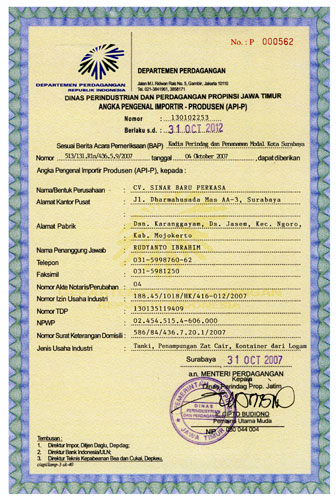 No. : P 000562
DEPARTEMEN PERDAGANGAN
REPUBLIK INDONESIA
DEPARTEMEN PERDAGANGAN
Jalan M.I. Ridwan Rais No. 5, Gambir, Jakarta 10110
DINAS PERINDUSTRIAN DAN PERDAGANGAN PROPINSI JAWA TIMUR
ANGKA PENGENAL IMPORTIR - PRODUSEN (API-P)
Nomor : 130102253
Berlaku s.d. : 31 OCT 2012
Sesuai Berita Acara Pemeriksaan (BAP) Kadin Perindag dan Penanaman Modal Kota Surabaya
Nomor 513/131.Kn/436.5.9/2007 tanggal 04 Oktober 2007 , dapat diberikan
Angka Pengenal Importir Produsen (API-P), kepada :
Nama/Bentuk Perusahaan : CV. SINAR BARU PERKASA
Alamat Kantor Pusat : Jl. Dharmahusada Mas AA-3, Surabaya
Alamat Pabrik : Dsn. Karanggayam, Ds. Jasem, Kec. Ngoro,
Kab. Mojokerto
Nama Penanggung Jawab : RUDYANTO IBRAHIM
Telepon : 031-5998760-62
Faksimil : 031-5981250
Nomor Akte Notaris/Perubahan : 04
Nomor Izin Usaha Industri : 188.45/1018/HK/416-012/2007
Nomor TDP : 130135119409
NPWP : 02.454.515.4-606.000
Nomor Surat Keterangan Domisili : 586/84/436.7.20.1/2007
Jenis Usaha Industri : Tanki, Penampungan Zat Cair, Kontainer dari Logam
Surabaya 31 OCT 2007
a.n. MENTERI PERDAGANGAN
Kepala
Dinas Perindag Prop. Jatim
CIPTO BUDIONO
Pembina Utama Muda
NIP. 050 044 004
PEMERINTAH
DINAS
PERINDUSTRIAN
DAN PERDAGANGAN
JAWA TIMUR
Tembusan :
1. Direktur Impor, Ditjen Daglu, Depdag;
2. Direktur Bank Indonesia/ULN;
3. Direktur Teknis Kepabeanan Bea dan Cukai, Depkeu.